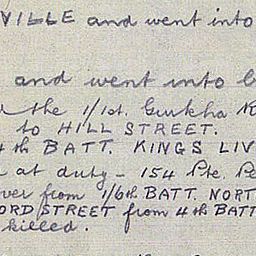 VILLE and went into
and went into
the 1/1st. Gurkha
to HILL STREET.
4th BATT. KINGS LIV
at duty - 154 Pte. Pe
ver from 1/6th BATT. NORT
ORD STREET from 4th BATT
killed.